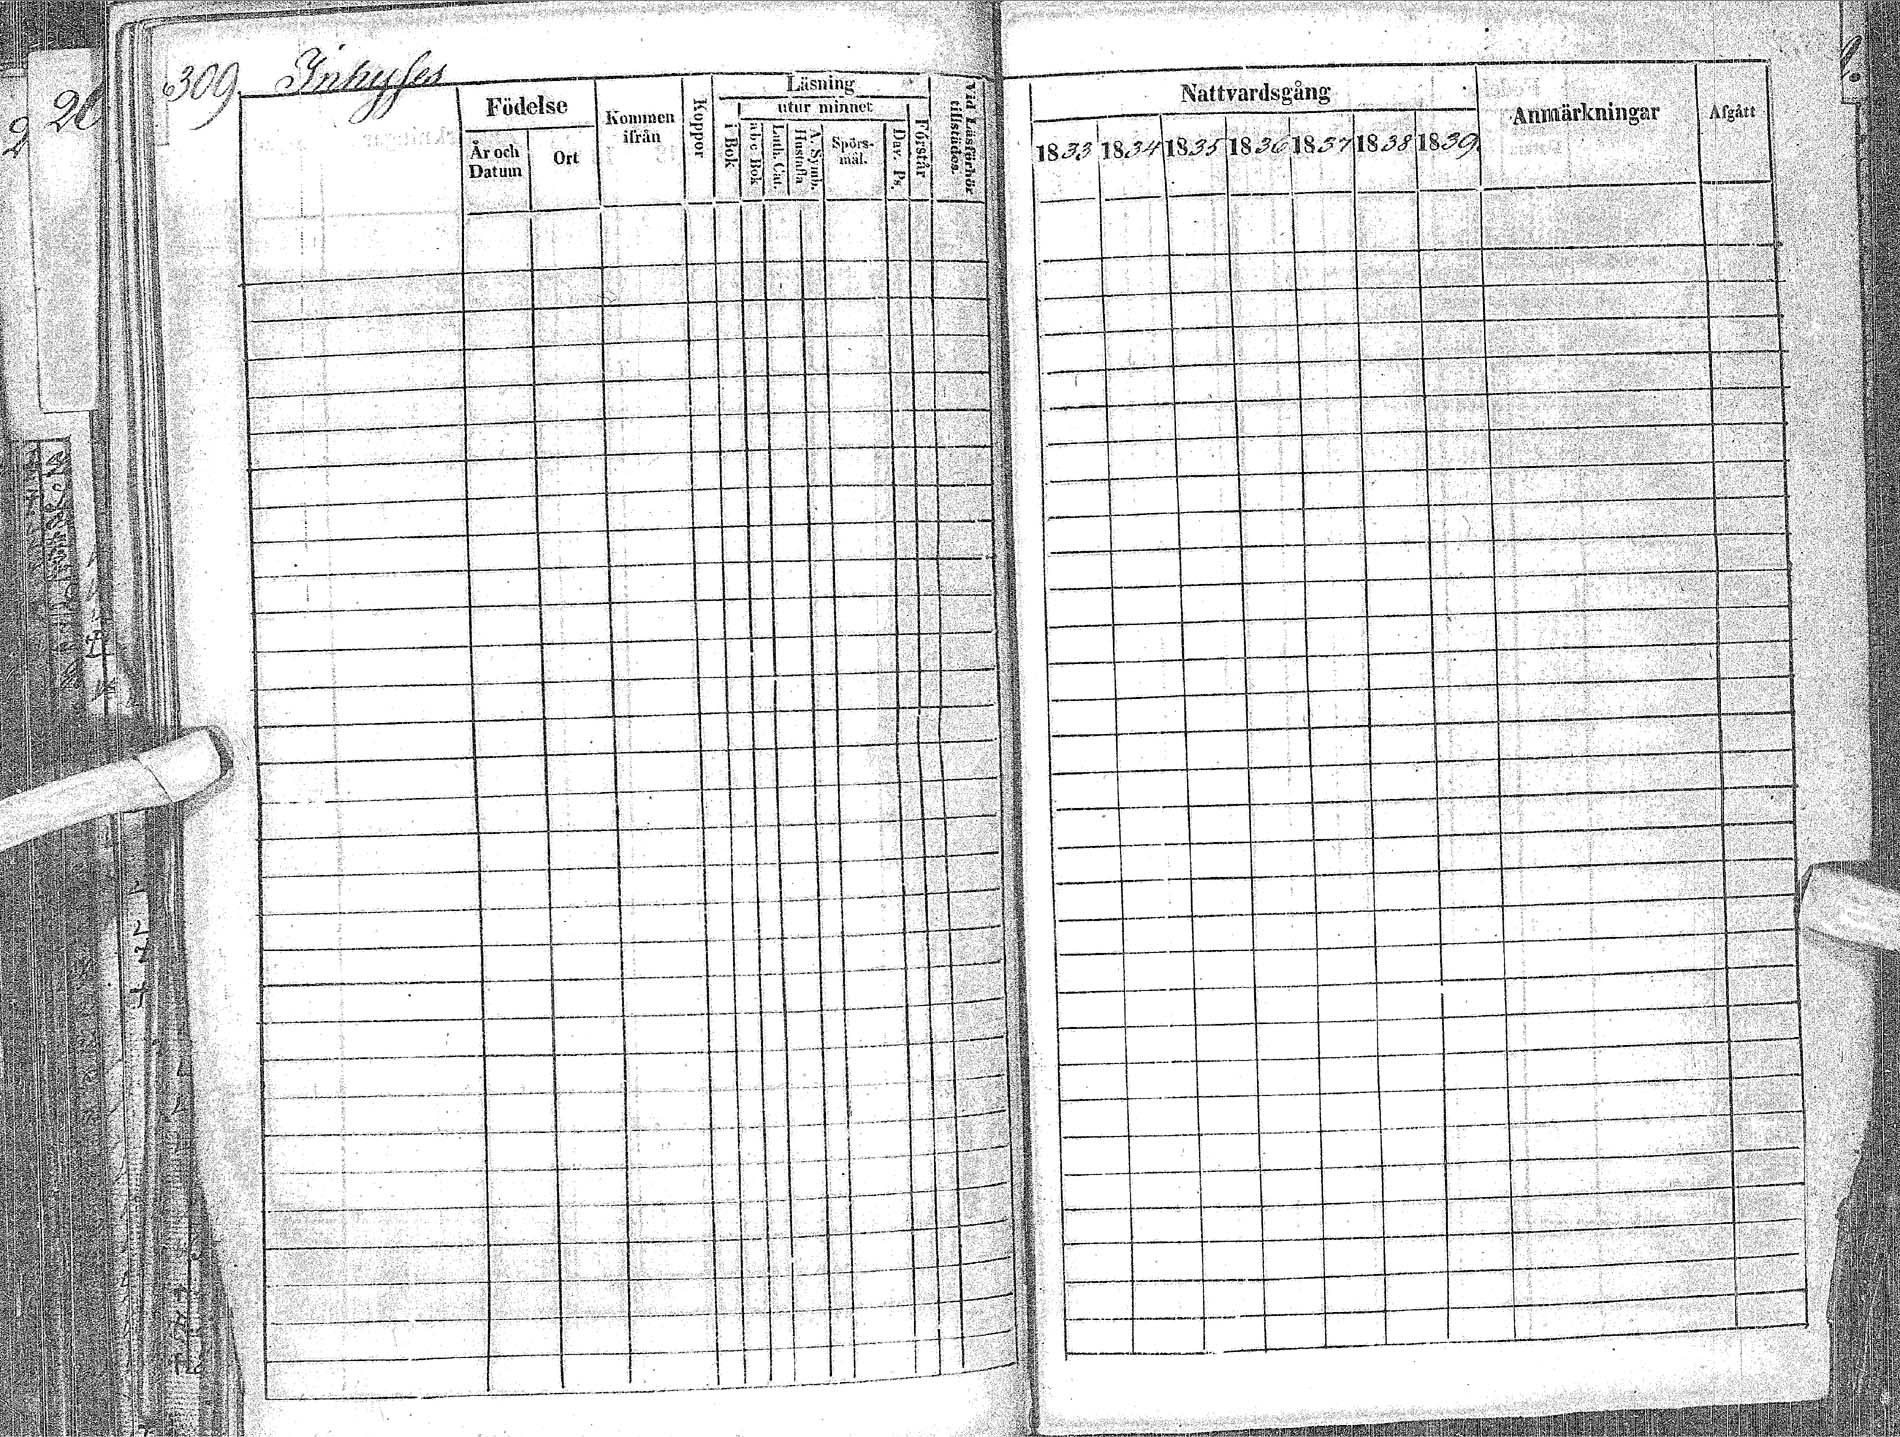 309. Inhyses
Födelse
År och Datum
Ort
Kommen ifrån
Koppor
Läsning
utur minnet
i Bok
a b c Bok
Luth. Cat.
A. Symb. Hustafla
Spörs-mål.
Dav. Ps.
Förstår
Vid Läsförhör tillstädes.
Nattvardsgång
1833 1834 1835 1836 1837 1838 1839
Anmärkningar
Afgått